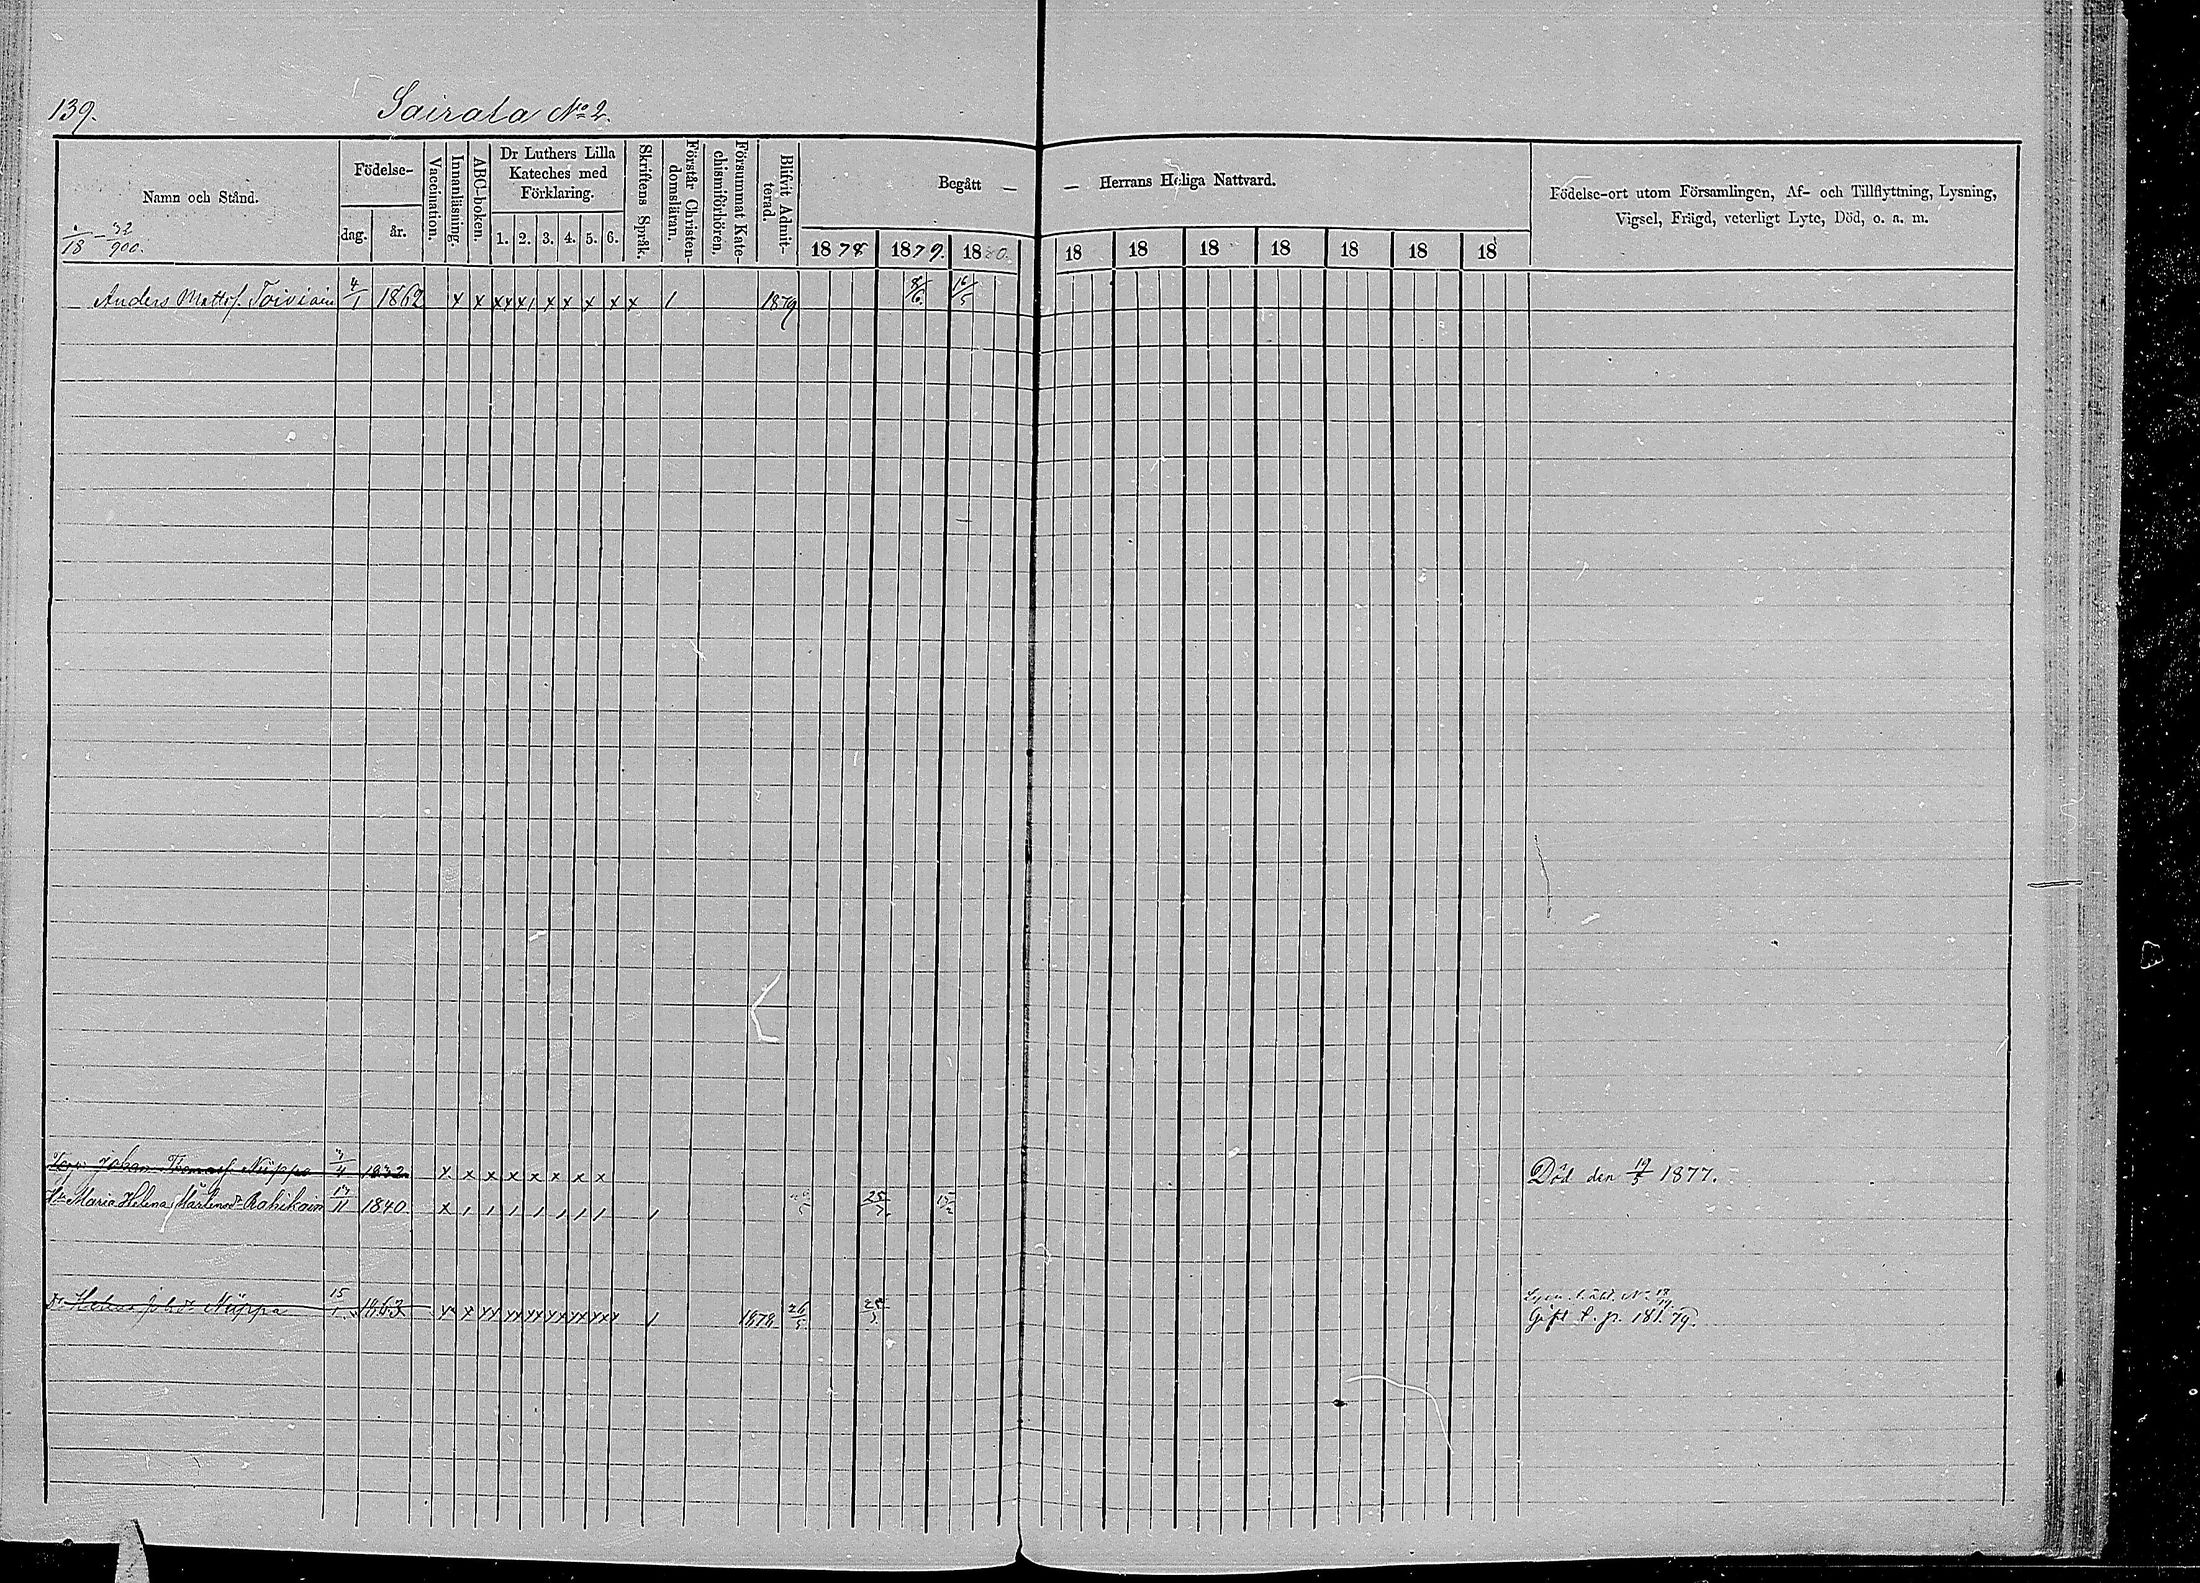 139. Sairala No 2.
Namn och Stånd.
Födelse-
dag. år.
Vaccination.
Innanläsning.
ABC-boken.
Dr Luthers Lilla
Kateches med
Förklaring.
1. 2. 3. 4. 5. 6.
Skriftens Språk.
Förstår Christen-
domsläran.
Försummat Kate-
chismiförhören.
Blifvit Admit-
terad.
Begått — — Herrans Heliga Nattvard.
1878 1879. 1880. 18 18 18 18 18 18 18
Födelse-ort utom Församlingen, Af- och Tillflyttning, Lysning,
Vigsel, Frägd, veterligt Lyte, Död, o. a. m.
Anders Mattsf. Toiviain 4/1 1862 x x xx x1 x x x x x 1 1879 8/6. 16/5
Johan Tomasf. Nuppa 4 1832 x x x x x x x x Död den 19/5 1877.
Hu Maria Helena Mårtensdr Rahikain 17/11 1840. x 1 1 1 1 1 1 1 1 25
Dr Helena Johdr Nuppa 15/1 1863 1 1878 26/5
Gift t. p. 181. 79.